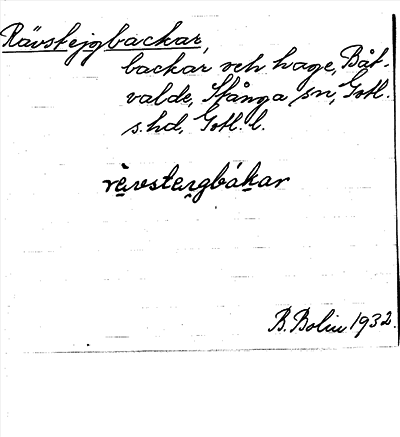 Rävstejgbackar,
backar och hage, Båt-
valde, Stånga sn, Gotl.
s. hd, Gotl. l.
rèvstergbákar
B. Bolin 1932.